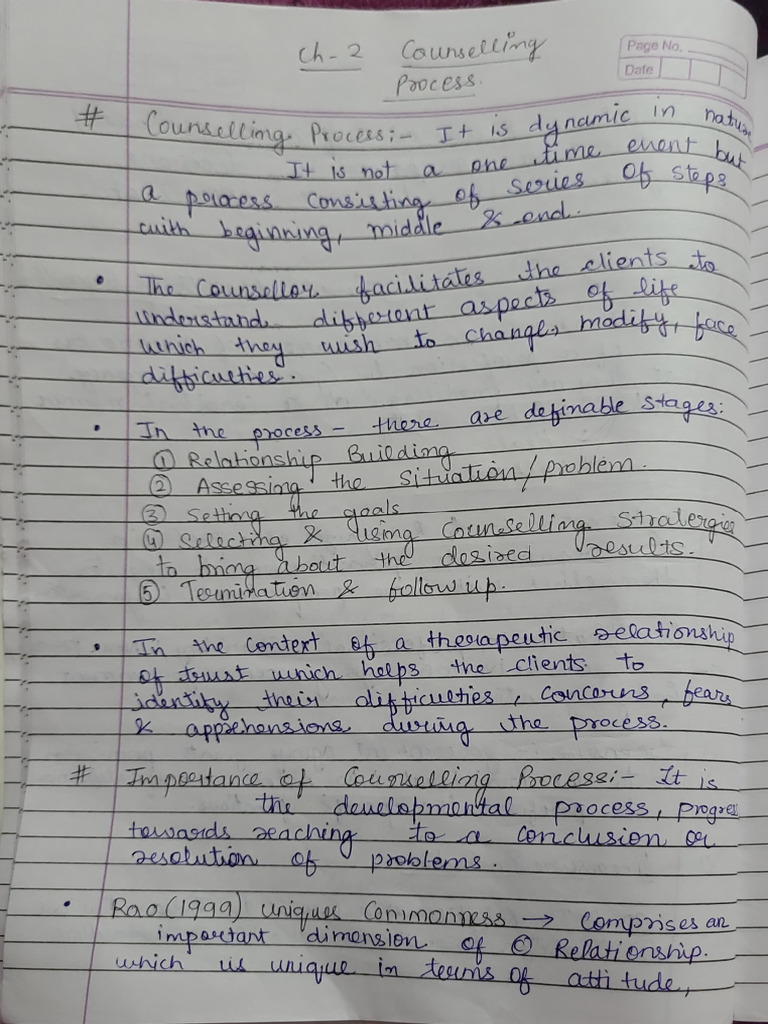 Ch-2 Counselling
Process.
Page No.
Date
# Counselling Process:- It is dynamic in nature
It is not a one time event but
a process consisting of series of steps
with beginning, middle & end.
• The Counsellor facilitates the clients to
understand different aspects of life
which they wish to change, modify, face
difficulties.
• In the process - there are definable stages:
① Relationship Building
② Assessing the situation/problem.
③ Setting the goals
④ Selecting & using Counselling Stratergies
to bring about the desired results.
⑤ Termination & follow up.
• In the context of a therapeutic relationship
of trust which helps the clients to
identity their difficulties, concerns, fears
& apprehensions during the process.
# Importance of Counselling Process:- It is
the developmental process, progres
towards reaching to a conclusion or
resolution of problems.
• Rao(1999) uniques Commonness → Comprises an
important dimension of Relationship.
which is unique in terms of attitude,